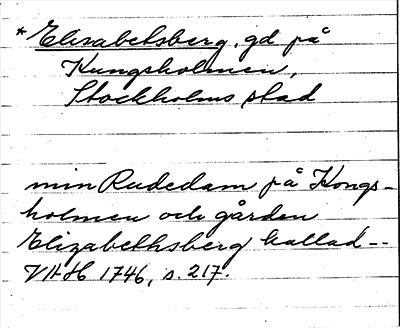 * Elisabetsberg, gd på
Kungsholmen,
Stockholms stad
min Rudedam på Kongs-
holmen och gården
Elizabethsberg kallad--
VHH 1746, s. 217.